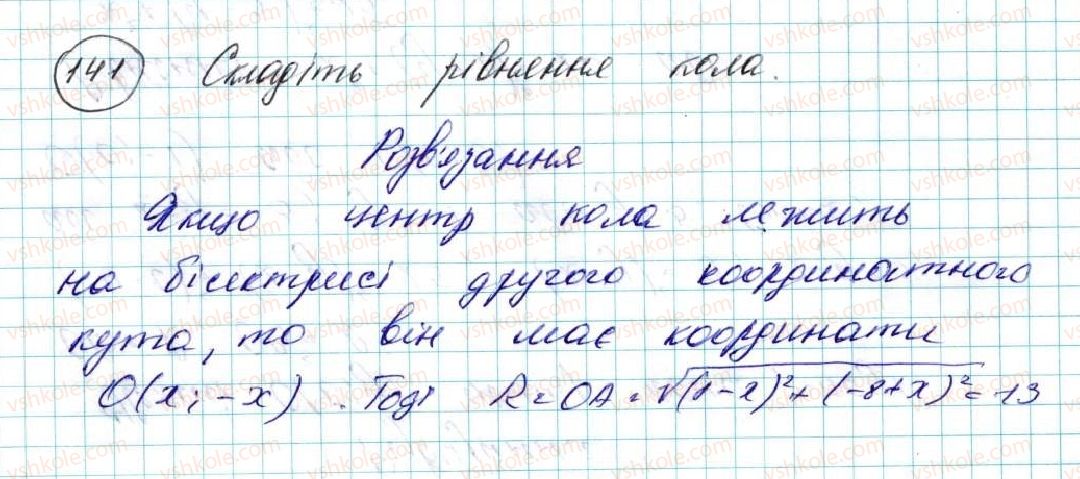 141 Складіть рівняння кола.
Розв'язання
Якщо центр кола лежить
на бісектрисі другого координатного
кута, то він має координати
O(x; -x). Тоді R = OA = √(1-x)² + (-8+x)² = 13